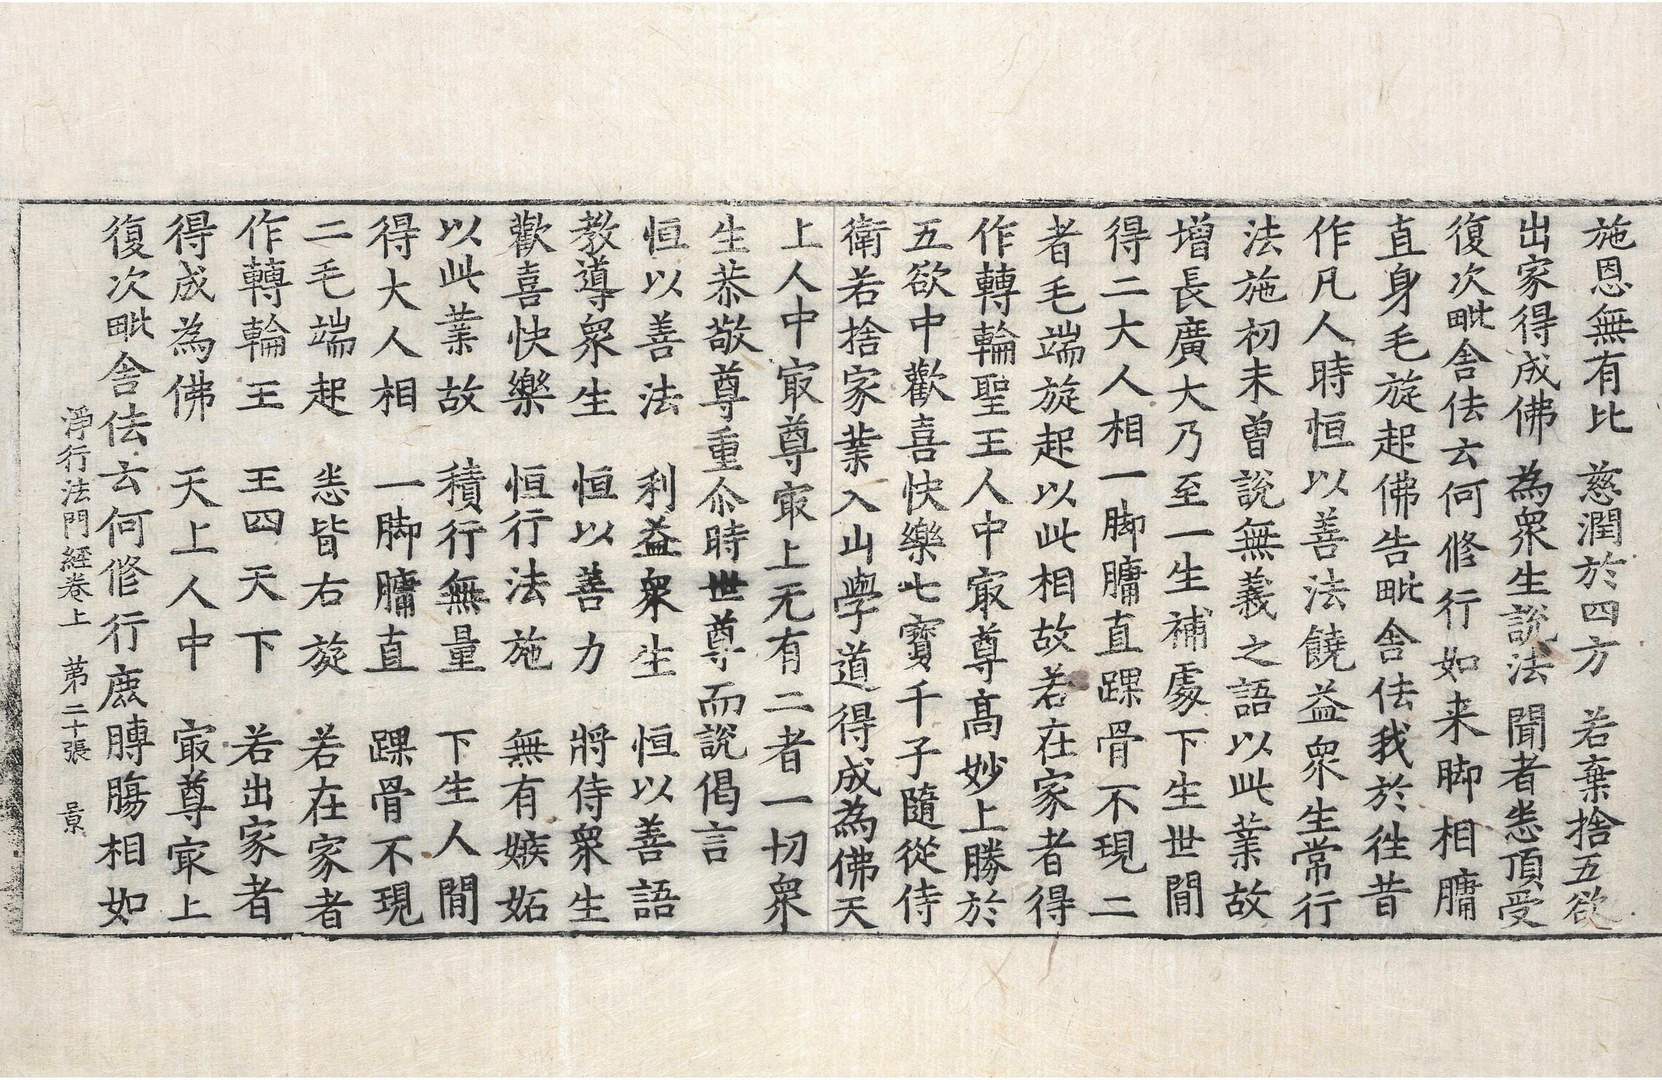 施恩無有比　慈潤於四方　若棄捨五欲
出家得成佛　為衆生説法　聞者悉頂受
復次毗舍佉云何修行如来脚相𦟛
直身毛旋起佛告毗舍佉我於徃昔
作凡人時恒以善法饒益衆生常行
法施初未曽說無義之語以此業故
增長廣大乃至一生補處下生世間
得二大人相一脚𦟛直踝骨不現二
者毛端旋起以此相故若在家者得
作轉輪聖王人中㝡尊高妙上勝於
五欲中歡喜快樂七寶千子隨從侍
衛若捨家業入山學道得成為佛天
上人中㝡尊㝡上无有二者一切衆
生恭敬尊重尒時世尊而說偈言
恒以善法　利益衆生　恒以善語
教導衆生　恒以善力　將侍衆生
歡喜快樂　恒行法施　無有嫉妬
以此業故　積行無量　下生人間
得大人相　一脚𦟛直　踝骨不現
二毛端起　悉皆右旋　若在家者
作轉輪王　王四天下　若出家者
得成為佛　天上人中　㝡尊㝡上
復次毗舍佉云何修行鹿膞腸相如
淨行法門經卷上　第二十張　景